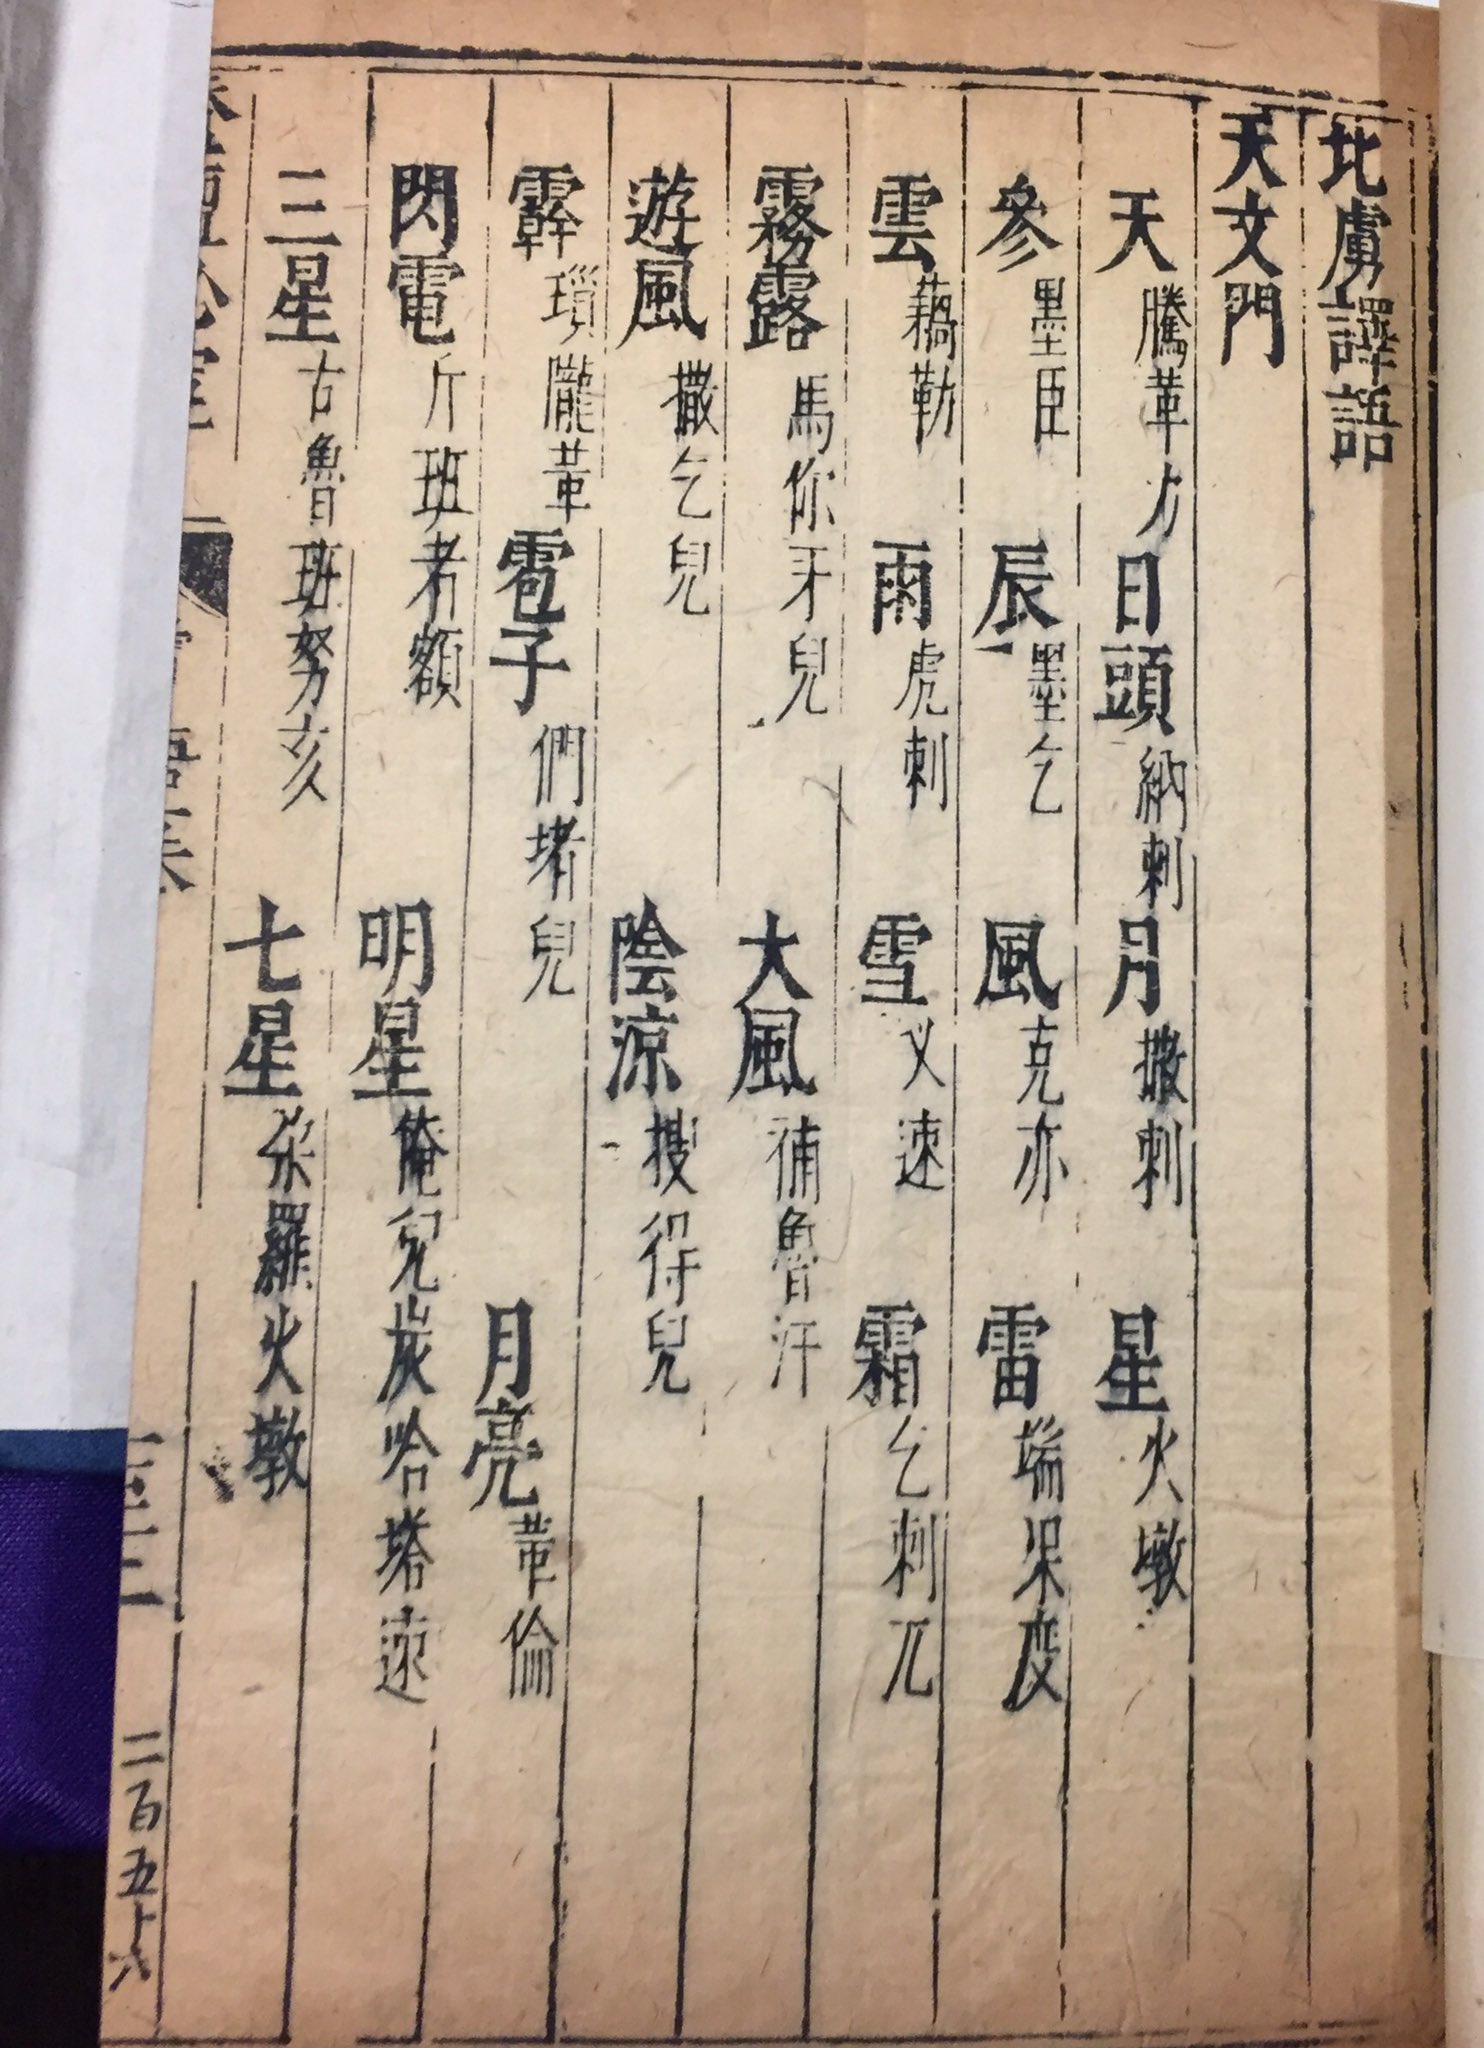 北虜譯語
天文門
天 騰革力 日頭 納剌 月 撒剌 星 火墩
參 墨臣 辰 墨乞 風 克亦 雷 瑞保度
雲 藕勒 雨 虎剌 雪 义速 霜 乞剌兀
霧露 馬你牙兒 大風 補魯汗
遊風 撒乞兒 陰涼 搜得兒
瓏革 雹子 們堵兒 月亮 革倫
閃電 斤班者額 明星 俺兒炭哈塔速
三星 古魯班努亥 七星 朶羅火墩
二百五十六